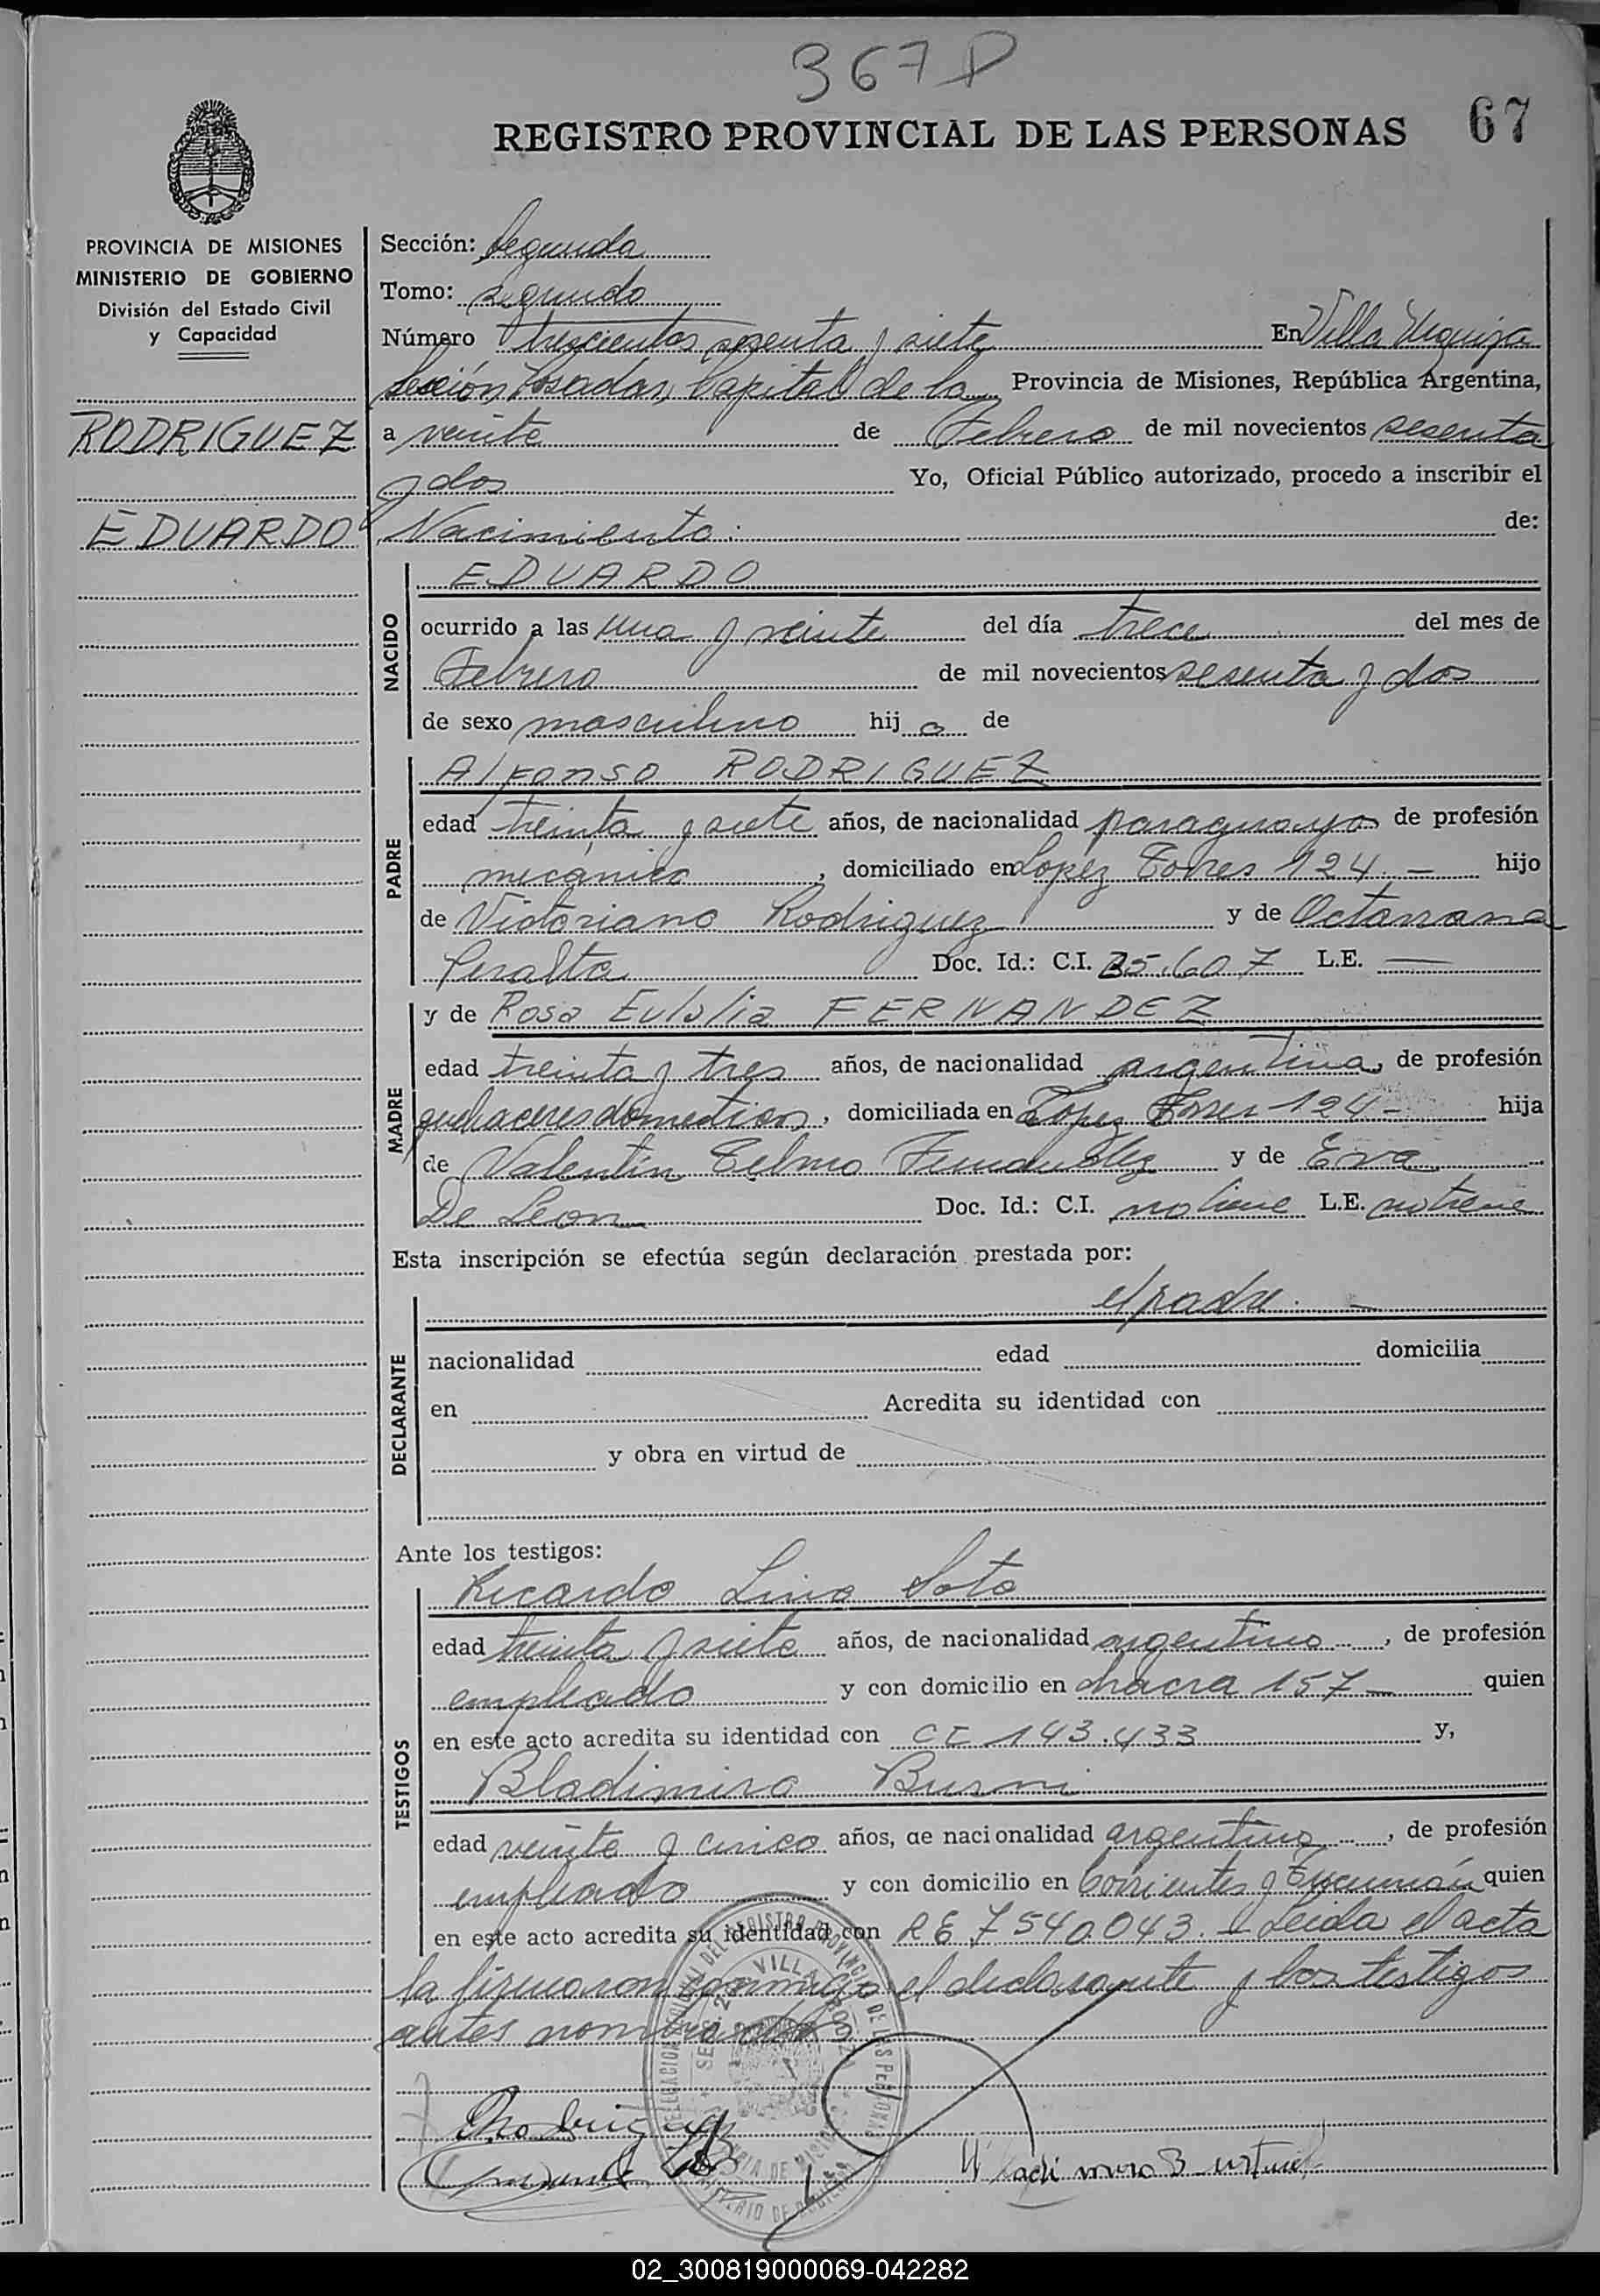 367 P
REGISTRO PROVINCIAL DE LAS PERSONAS 67
PROVINCIA DE MISIONES
MINISTERIO DE GOBIERNO
División del Estado Civil
y Capacidad
RODRIGUEZ
EDUARDO
Sección: Segunda
Tomo: segundo
Número trescientos sesenta y siete En Villa Urquiza
Sección, Posadas, Capital de la Provincia de Misiones, República Argentina,
a veinte de Febrero de mil novecientos sesenta
y dos Yo, Oficial Público autorizado, procedo a inscribir el
Nacimiento: de:
NACIDO
EDUARDO
ocurrido a las una y veinte del día trece del mes de
Febrero de mil novecientos sesenta y dos
de sexo masculino hijo de
PADRE
Alfonso RODRIGUEZ
edad treinta y siete años, de nacionalidad paraguaya de profesión
mecánico, domiciliado en Lopez Torres 124.— hijo
de Victoriano Rodriguez y de
Peralta Doc. Id.: C.I. 35.607 L.E. —
MADRE
y de Rosa Eulalia FERNANDEZ
edad treinta y tres años, de nacionalidad argentina, de profesión
quehaceres domesticos, domiciliada en Lopez Torres 124- hija
de Valentín Telmo Fernandez y de Eva
De Leon Doc. Id.: C.I. no tiene L.E. no tiene
Esta inscripción se efectúa según declaración prestada por:
DECLARANTE
el padre. —
nacionalidad edad domicilia
en Acredita su identidad con
y obra en virtud de
Ante los testigos:
TESTIGOS
Ricardo Lino Soto
edad treinta y siete años, de nacionalidad argentino, de profesión
empleado y con domicilio en chacra 157— quien
en este acto acredita su identidad con CI 143.433 y,
Bladimiro
edad veinte y cinco años, de nacionalidad argentino, de profesión
empleado y con domicilio en Corrientes y Tucumán quien
en este acto acredita su identidad con 7540.043. Leida el acta
la firmaron conmigo el declarante y los testigos
antes nombrados
Rodriguez
02_300819000069-042282